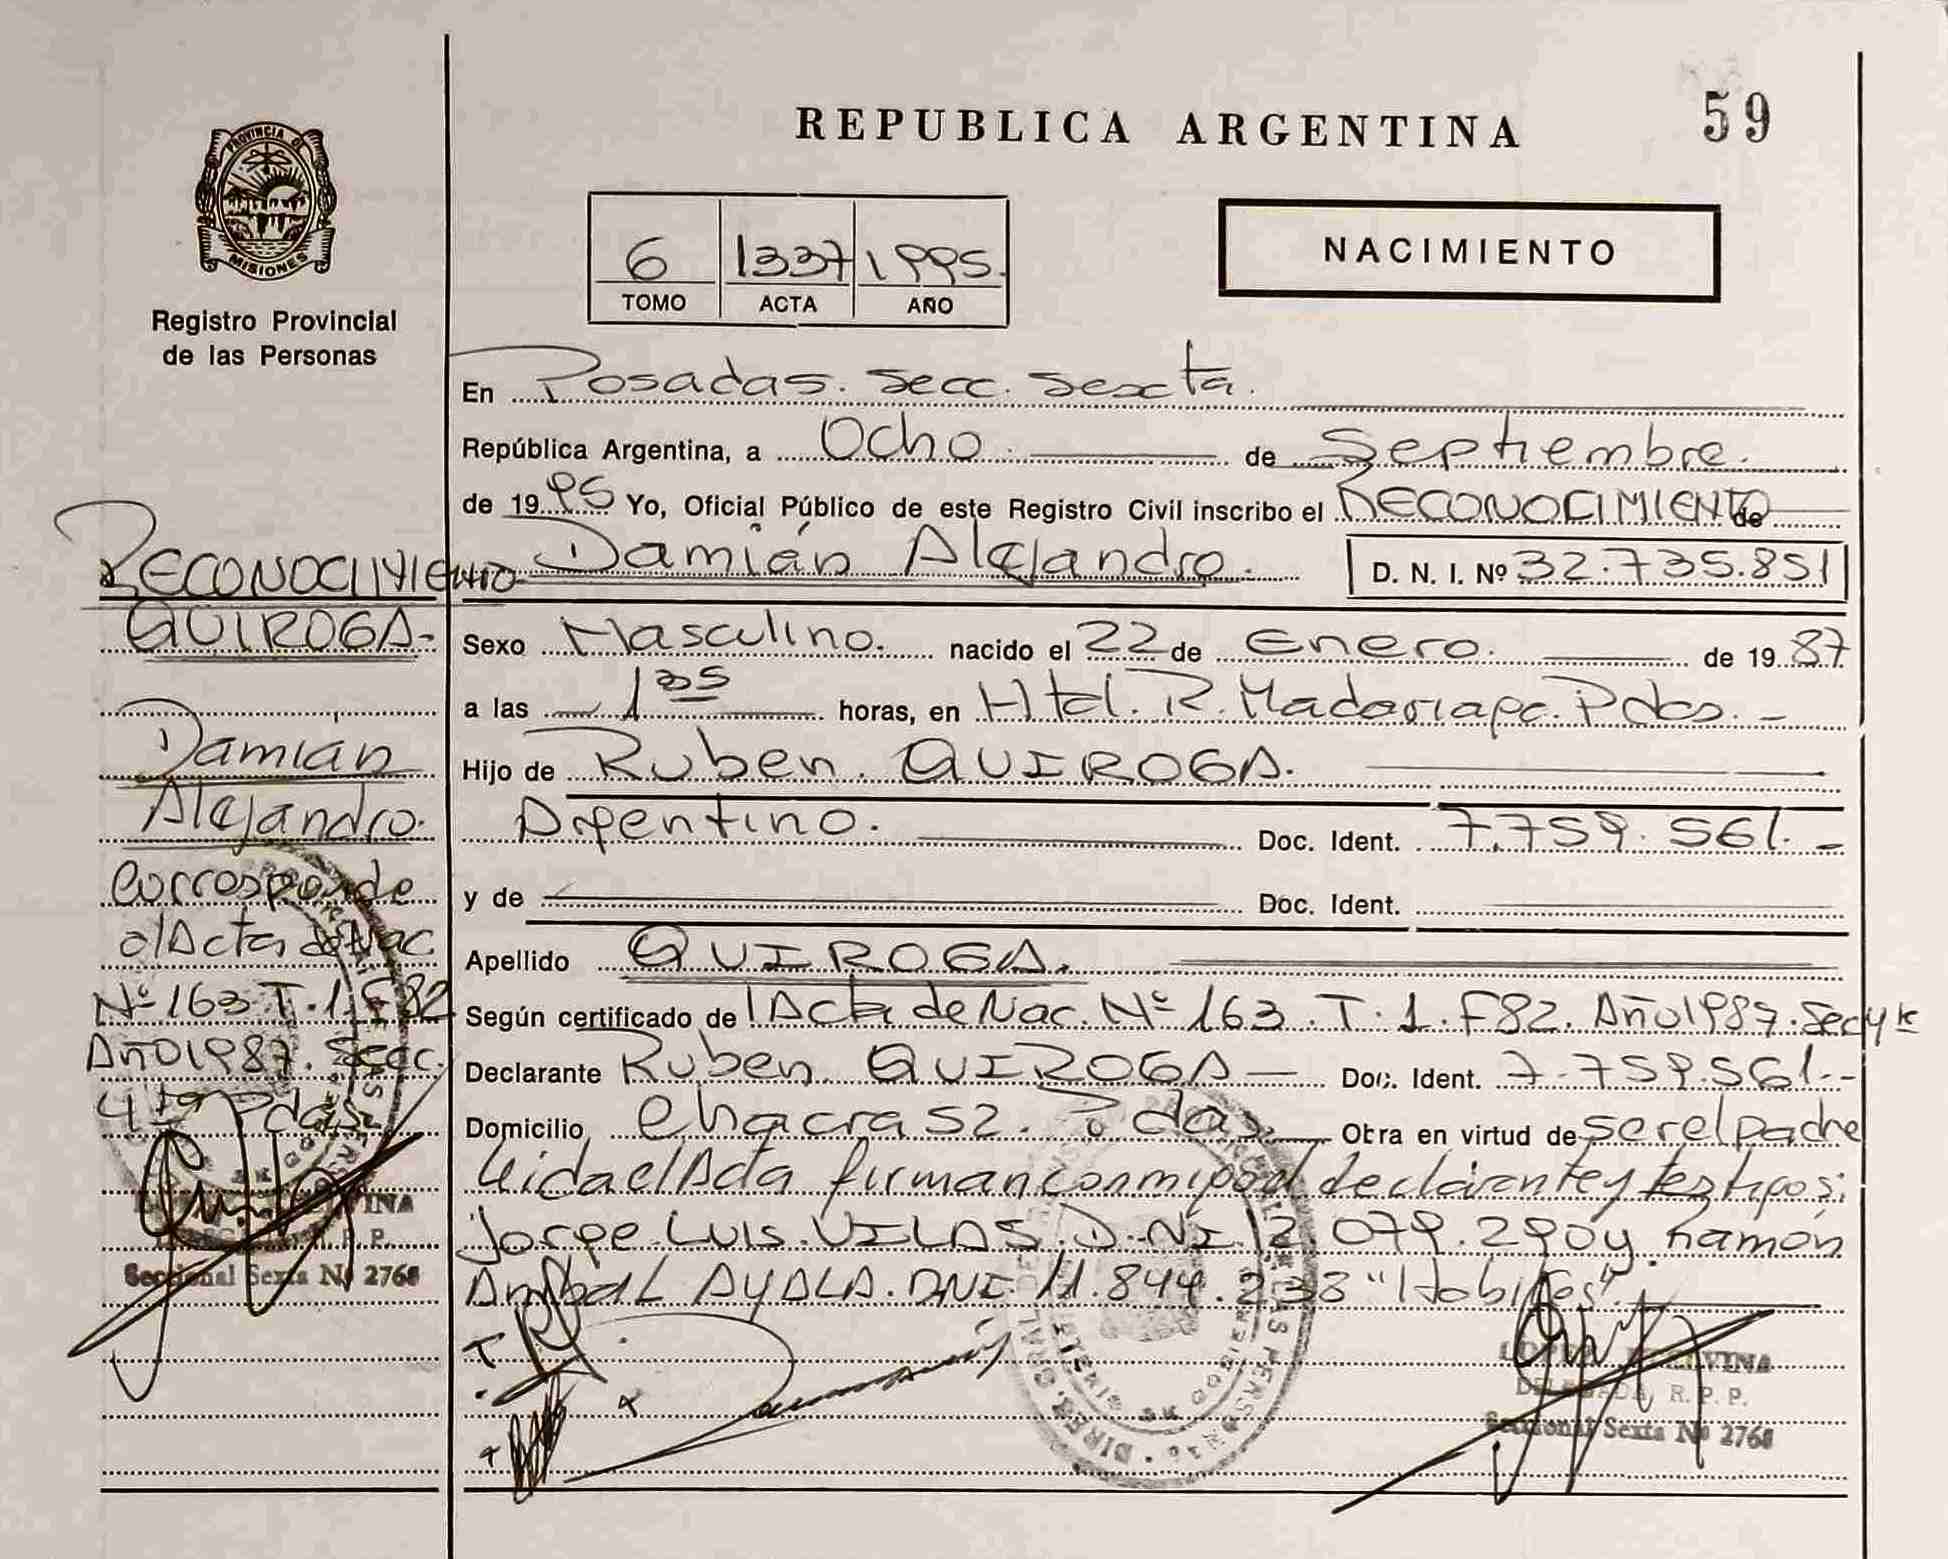 REPUBLICA ARGENTINA
59
PROVINCIA DE
MISIONES
Registro Provincial
de las Personas
6 1337 1995.
TOMO ACTA AÑO
NACIMIENTO
En Posadas. Secc. Sexta.
República Argentina, a Ocho. de Septiembre.
de 1995 Yo, Oficial Público de este Registro Civil inscribo el RECONOCIMIENTO de
Damián Alejandro. D. N. I. Nº 32.735.851
Sexo Masculino. nacido el 22 de Enero. de 1987
a las 1 horas, en Htal. R. Madariaga. Pdas. -
Hijo de Ruben. QUIROGA.
Argentino. Doc. Ident. 7.759.561. -
y de Doc. Ident.
Apellido QUIROGA.
Según certificado de Acta de Nac. Nº 163. T. 1. F82. Año 1987. Secc
Declarante Ruben QUIROGA - Doc. Ident. 7.759.561.-
Domicilio Chacra 52. Pdas. Obra en virtud de ser el padre
Leida el Acta firman conmigo el declarante y testigos:
Jorge Luis VILAS. D.NI. 12.079.290 y ramón
Anibal AYALA. DNI. 11.844.233 "Hábiles".
RECONOCIMIENTO
QUIROGA-
Damián
Alejandro.
Corresponde
a/Acta de Nac
Nº 163. T. 1. F82
Año 1987. Secc.
4ta Pdas.
R. P. P.
Seccional Sexta Nº 2768
DELEGADA, R. P. P.
Seccional Sexta Nº 2768